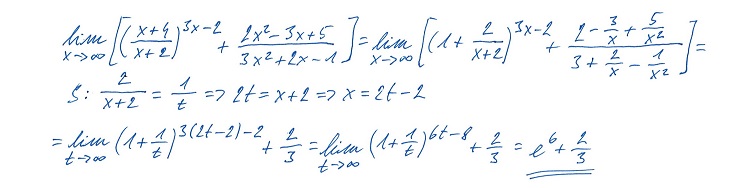 lim x→∞ [((x+4)/(x+2))^(3x-2) + (2x²-3x+5)/(3x²+2x-1)] = lim x→∞ [(1 + 2/(x+2))^(3x-2) + (2 - 3/x + 5/x²)/(3 + 2/x - 1/x²)] =
S: 2/(x+2) = 1/t => 2t = x+2 => x = 2t-2
= lim t→∞ (1+1/t)^(3(2t-2)-2) + 2/3 = lim t→∞ (1+1/t)^(6t-8) + 2/3 = e⁶ + 2/3